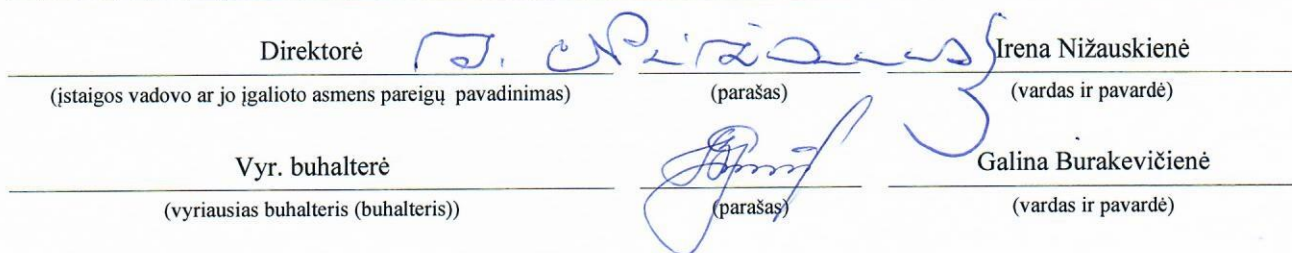 Direktorė Irena Nižauskienė
(įstaigos vadovo ar jo įgalioto asmens pareigų pavadinimas) (parašas) (vardas ir pavardė)
Vyr. buhalterė Galina Burakevičienė
(vyriausias buhalteris (buhalteris)) (parašas) (vardas ir pavardė)